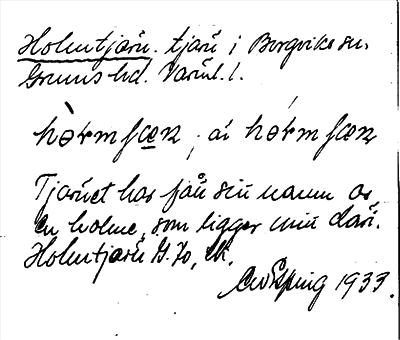 Holmtjärn. tjärn i Borgviks sn.
Grums hd. Värml. l.
hòrmʃæn, äv hórmʃæn
Tjärnet har fått sin namn av
en holme, som ligger inuti däri.
Holmtjärn G. 70, Ek.
1933.